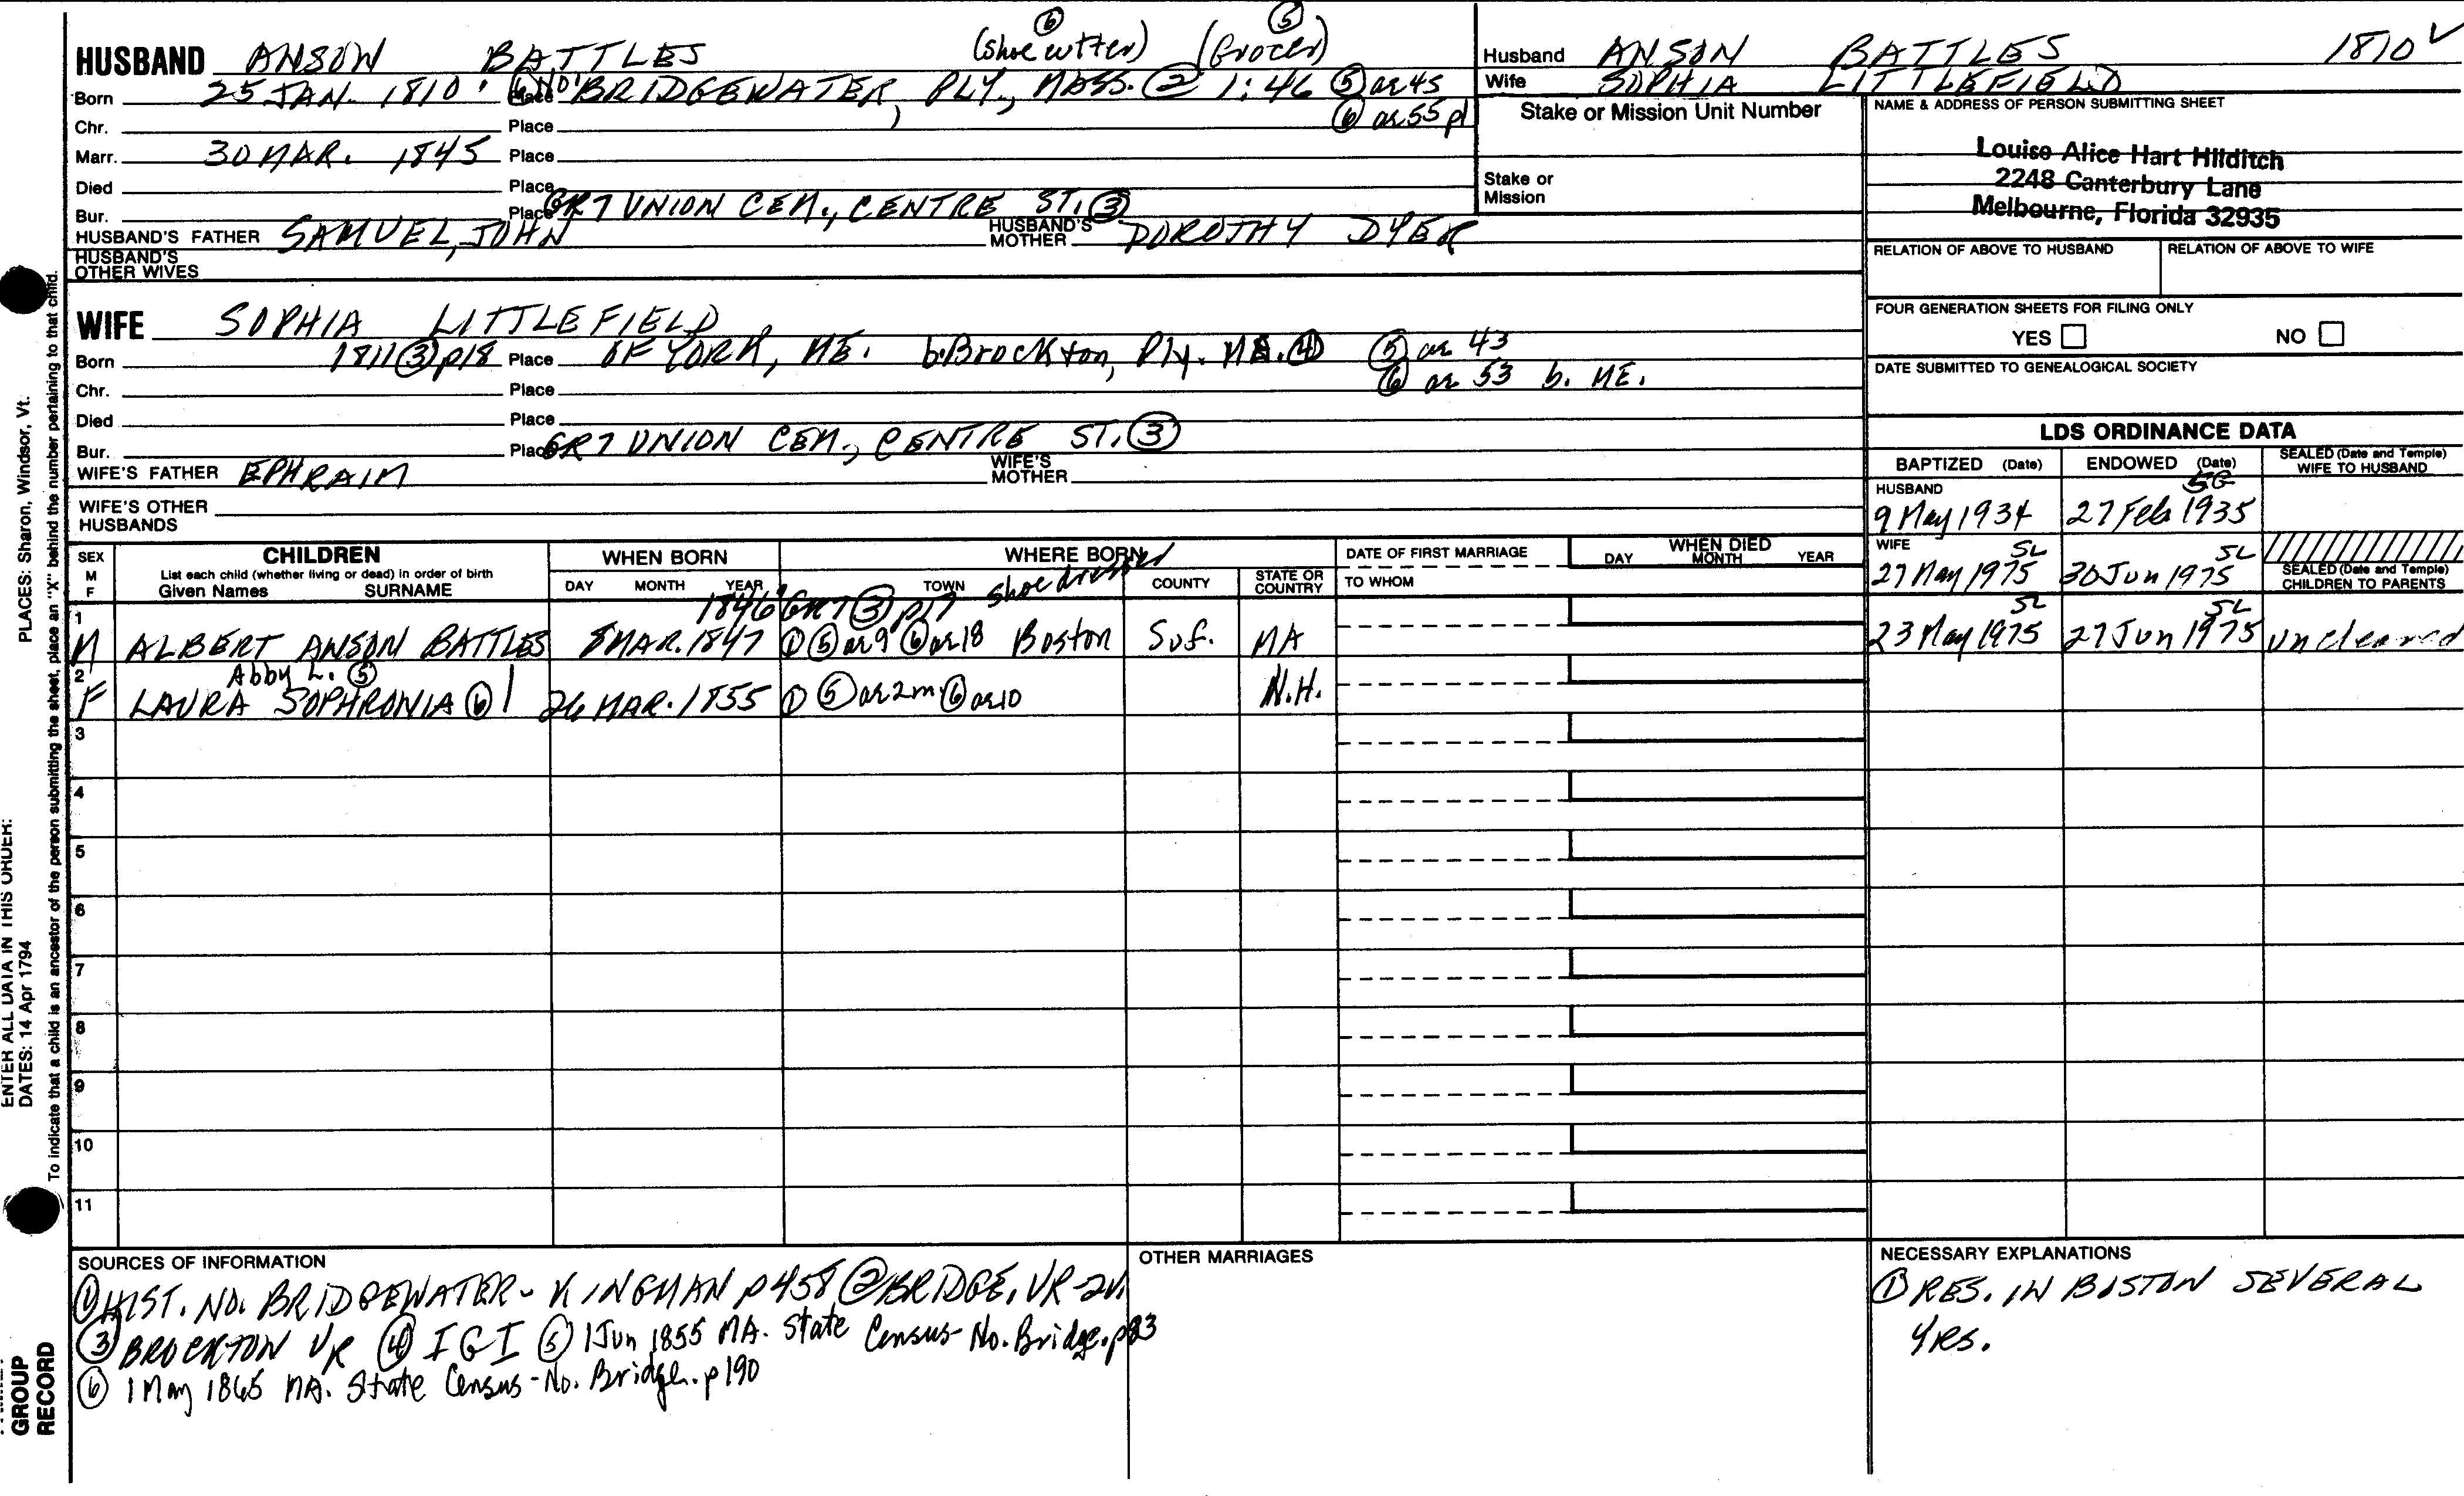 (6) (5)
HUSBAND ANSON BATTLES (Shoe cutter) (Grocer)
Born 25 JAN. 1810 Place NO. BRIDGEWATER, PLY., MASS. (2) 1:46 (5) ae 45
Chr. Place (6) ae 55
Marr. 30 MAR. 1845 Place
Died Place
Bur. Place GR7 UNION CEM., CENTRE ST. (3)
HUSBAND'S FATHER SAMUEL, JOHN HUSBAND'S MOTHER DOROTHY DYER
HUSBAND'S OTHER WIVES
WIFE SOPHIA LITTLEFIELD
Born 1811 (3) p18 Place OF YORK, ME. b. Brockton, Ply. MA. (4) (5) ae 43
Chr. Place (6) ae 53 b. ME.
Died Place
Bur. Place GR7 UNION CEM., CENTRE ST. (3)
WIFE'S FATHER EPHRAIM WIFE'S MOTHER
WIFE'S OTHER HUSBANDS
Husband ANSON BATTLES 1810 ✓
Wife SOPHIA LITTLEFIELD
Stake or Mission Unit Number
Stake or Mission
NAME & ADDRESS OF PERSON SUBMITTING SHEET
Louise Alice Hart Hilditch
2248 Canterbury Lane
Melbourne, Florida 32935
RELATION OF ABOVE TO HUSBAND RELATION OF ABOVE TO WIFE
FOUR GENERATION SHEETS FOR FILING ONLY
YES NO
DATE SUBMITTED TO GENEALOGICAL SOCIETY
LDS ORDINANCE DATA
BAPTIZED (Date) ENDOWED (Date) SEALED (Date and Temple) WIFE TO HUSBAND
HUSBAND SG
9 May 1934 27 Feb 1935
WIFE SL SL
27 May 1975 30 Jun 1975
SEALED (Date and Temple) CHILDREN TO PARENTS
SL SL
23 May 1975 27 Jun 1975 uncleared
SEX M F
CHILDREN
List each child (whether living or dead) in order of birth
Given Names SURNAME
WHEN BORN
DAY MONTH YEAR
WHERE BORN
TOWN COUNTY STATE OR COUNTRY
DATE OF FIRST MARRIAGE
TO WHOM
WHEN DIED
DAY MONTH YEAR
1 1846 GR7 (3) p17 shoe dresser
M ALBERT ANSON BATTLES 8 MAR. 1847 (1) (5) ae 9 (6) ae 18 Boston Suf. MA
2 Abby L. (5)
F LAURA SOPHRONIA (6) 26 MAR. 1855 (1) (5) ae 2m (6) ae 10 N.H.
3
4
5
6
7
8
9
10
11
SOURCES OF INFORMATION
(1) HIST. NO. BRIDGEWATER - KINGMAN p458 (2) BRIDGE. VR-2v.
(3) BROCKTON VR (4) IGI (5) 1 Jun 1855 MA. State Census - No. Bridge. p83
(6) 1 May 1865 MA. State Census - No. Bridge. p190
OTHER MARRIAGES
NECESSARY EXPLANATIONS
(1) RES. IN BOSTON SEVERAL
YRS.
PLACES: Sharon, Windsor, Vt.
ENTER ALL DATA IN THIS ORDER:
DATES: 14 Apr 1794
To indicate that a child is an ancestor of the person submitting the sheet, place an "X" behind the number pertaining to that child.
GROUP
RECORD